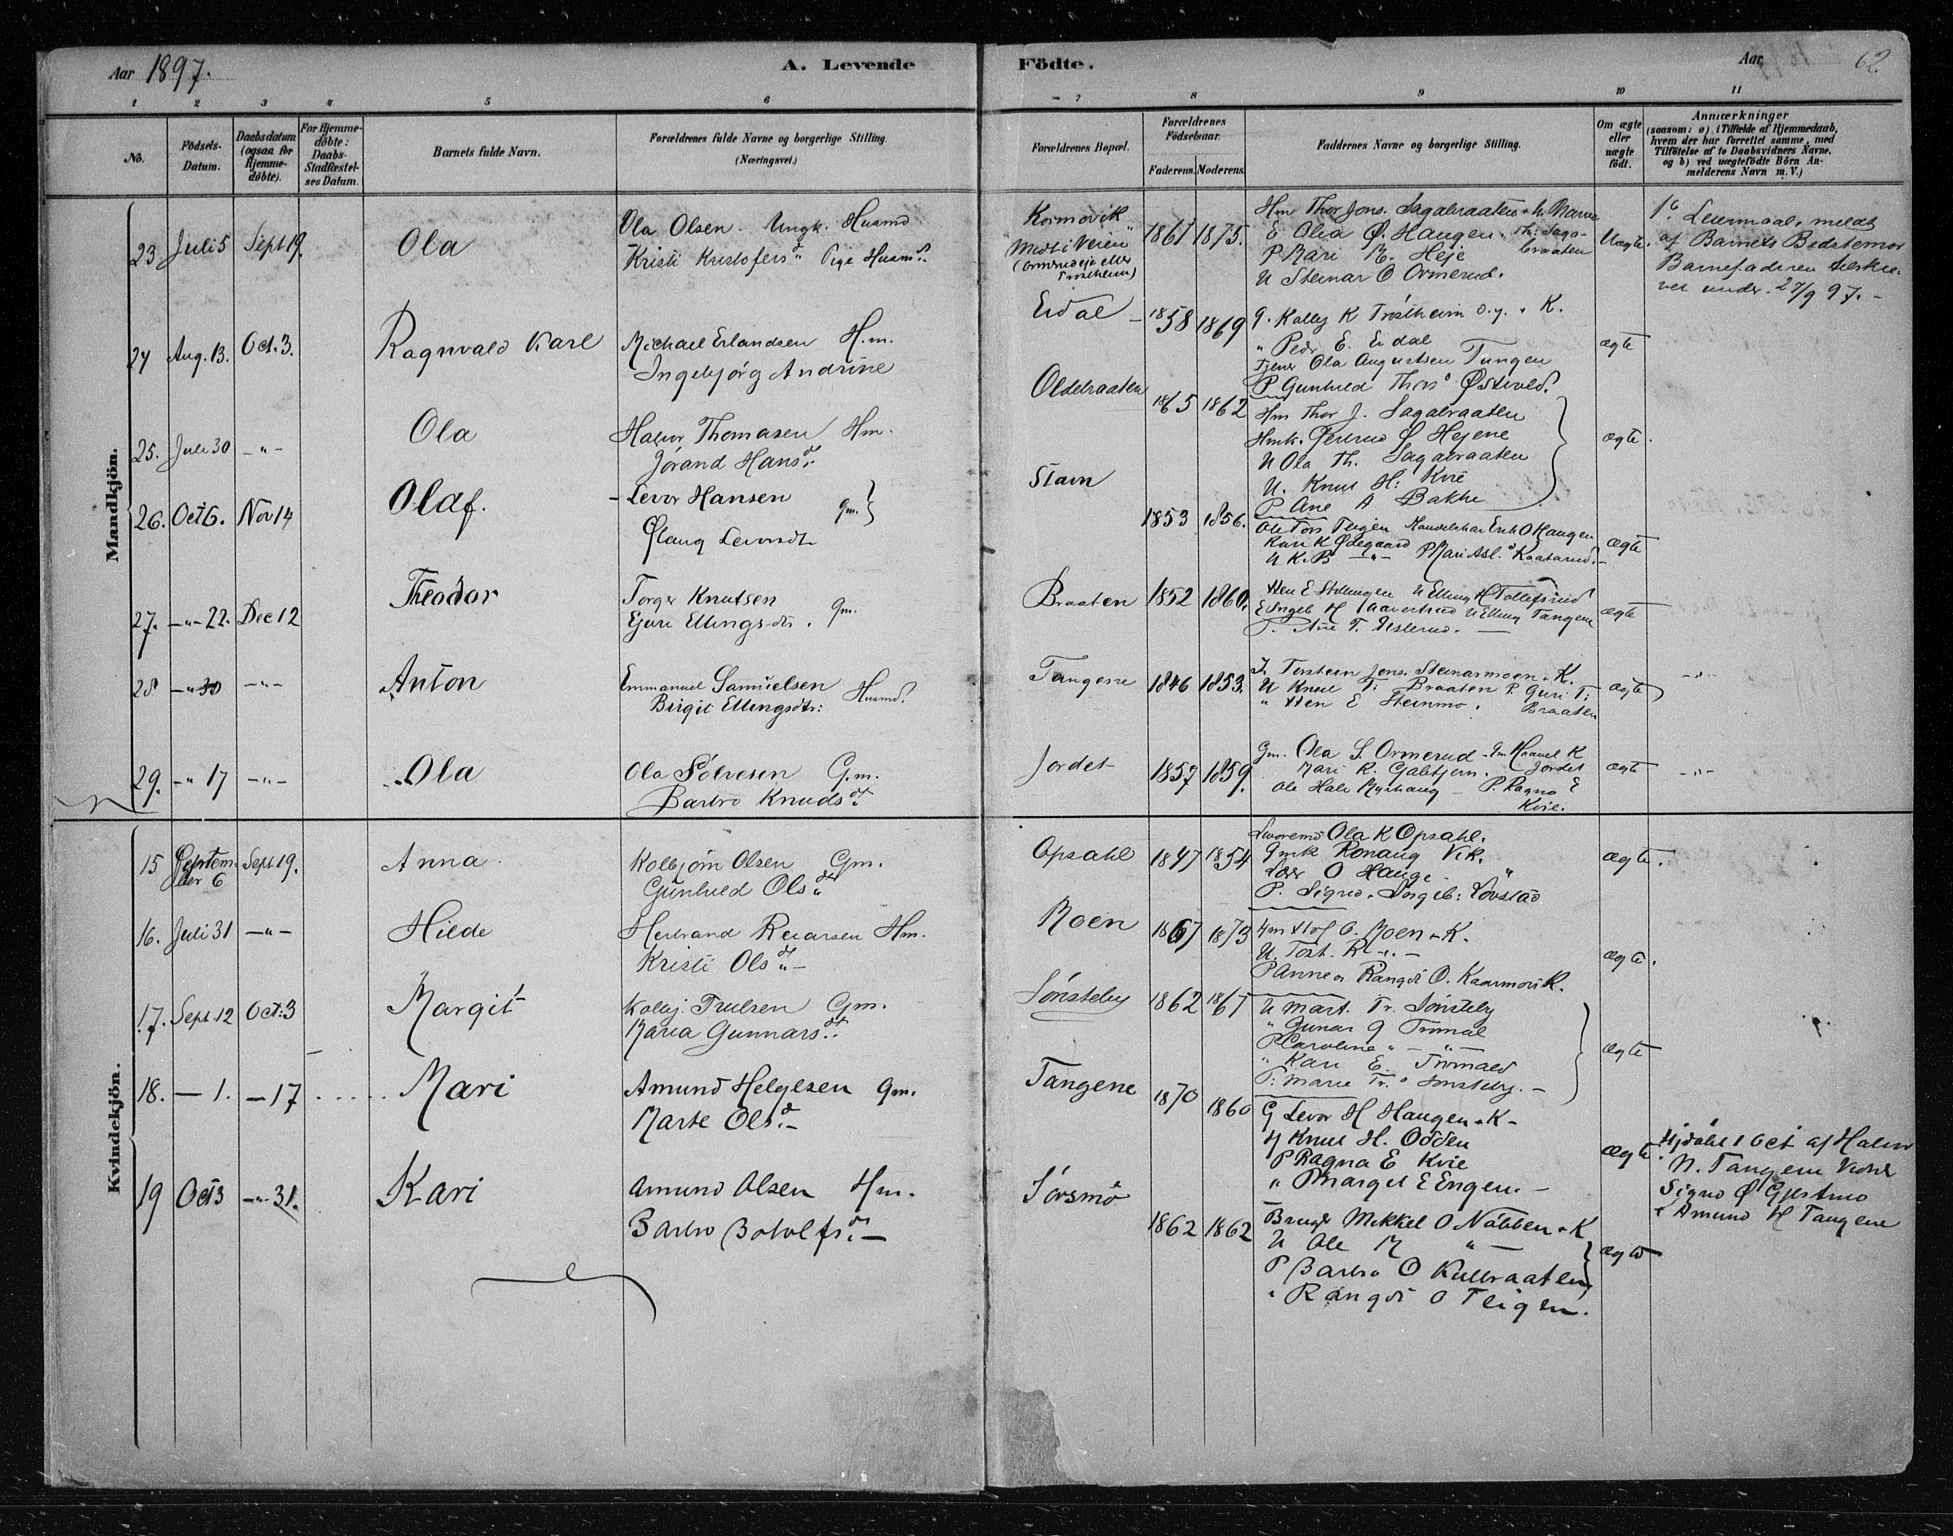 Aar 1897.
A. Levende
Födte.
Aar
62.
1 2 3 4 5 6 7 8 9 10 11
No.
Födsels-Datum.
Daabsdatum (ogsaa for Hjemme-döbte).
For Hjemme-döbte: Daabs-Stadfæstel-ses Datum.
Barnets fulde Navn.
Forældrenes fulde Navne og borgerlige Stilling.
(Næringsvei.)
Forældrenes Bopæl.
Forældrenes Födselsaar.
Faderens. Moderens.
Faddernes Navne og borgerlige Stilling.
Om ægte eller uægte födt.
Anmærkninger
(saasom: a) i Tilfælde af Hjemmedaab,
hvem der har forrettet samme, med
Tilföielse af to Daabsvidners Navne,
og b) ved uægtefödte Börn An-
melderens Navn m. V.)
Mandkjön.
23 Juli 5 Sept 19. Ola
Ola Olsen Ungk. Husmd
Kristi Kristofersd Pige Husmd.
Kormovik
Midt i Veien
1861 1875.
Hm Thor Jons. Sagabraaten
E Olia Ø. Haugen.
P Mari K. Heje
U Steinar O Ormerud.
Uægte.
1ste Leiermaal, meldt
af Barnets Bedstemor
Barnefaderen tilskre-
vet under 27/9 97.-
24 Aug. 13. Oct. 3. Ragnvald Karl
Michael Erlandsen H.m.
Ingebjörg Andrine
Eidal
1858 1869
G. Kolbj K Trostheim
" Peder E. Eidal
Tjener Ola Augustsen Tungen
P Gunhild Thos
ægte
25. Juli 30 -"- Ola
Halvor Thomasen Hm.
Jörand Hansd.
Oldebraaten
1865 1862
Hm Thor J. Sagabraaten
U Ola Th. Sagabraaten
U. Knut H. Kvie
P Ane A Bakke
ægte.
26. Oct 6. Nov 14 Olaf.
Levor Hansen Gm.
Ølaug Levordt
Stavn
1853 1856.
Ole Tors Teigen Handelskar Erik O Haugen
Kari K Ødegaard
U K. B -"- P Mari Asl.
ægte
27. -"- 22. Dec 12 Theodor
Torger Knutsen Gm.
Gjøri Ellingsdtr.
Braaten
1852 1860.
ægte
28 -"- 30 -"- Anton
Emmanuel Samuelsen Husmd.
Birgit Ellingsdtr:
Tangene
1846 1853.
J. Torstein Jons. Steinarmoen + K.
U Knut T: Braaten P Guri T:
" Hen E Steinmo. Braaten
ægte
-"-
29. -"- 17 -"- Ola
Ola Solvesen Gm.
Barbro Knudsd.
Jordet
1857 1859.
Gm. Ola S. Ormerud
Mari K. Galtjern. Jordet
Ole Halv Myrhaug P. Ragna E
Kvie.
ægte
-"-
Kvindekjön.
15 September 6 Sept 19. Anna
Kolbjörn Olsen Gm.
Gunhild Olsd
Opsahl
1847 1854
Ola K Opsahl.
Gmk Ronaug Vik.
Levor O Hauge
P. Sigrid
ægte.
16. Juli 31 -"- Hilde
Herbrand Reiarsen Hm.
Kristi Olsd
Moen
1867 1873
Hm Olof O. Moen + K.
U. Tost. R -"-
P Anne o Rangdi O. Kaarmovik.
ægte.
17. Sept 12 Oct. 3 Margit
Kolbj. Trulsen Gm.
Maria Gunnarsd.
Sönsteby
1862 1861
U Mart. Tr. Sönsteby
" Gunar G Tromal
P Caroline " -"-
" Kari E. Tromald
P: Marie Tr. Sønsteby.
ægte
18. - 1. - 17 Mari
Amund Helgesen Gm.
Marte Olsd.
Tangene
1870 1860
G Levor H Haugen + K
U Knut H. Odden
P Ragna E Kvie
" Margit E Engen.
ægte
Hjdöbt 1 Oct af Halvor
N. Tangene Vidner
Sigrid Ø Gjestmo
& Amund H Tangene
19 Oct 3 -"- 31. Kari
Amund Olsen Hm.
Barbro Botolfsd.
Sörsmo
1862 1862
Bruger Mikkel O Nobben + K
U Ole M "
P Barbro O Kulbraaten
" Rangdi O Teigen.
ægte